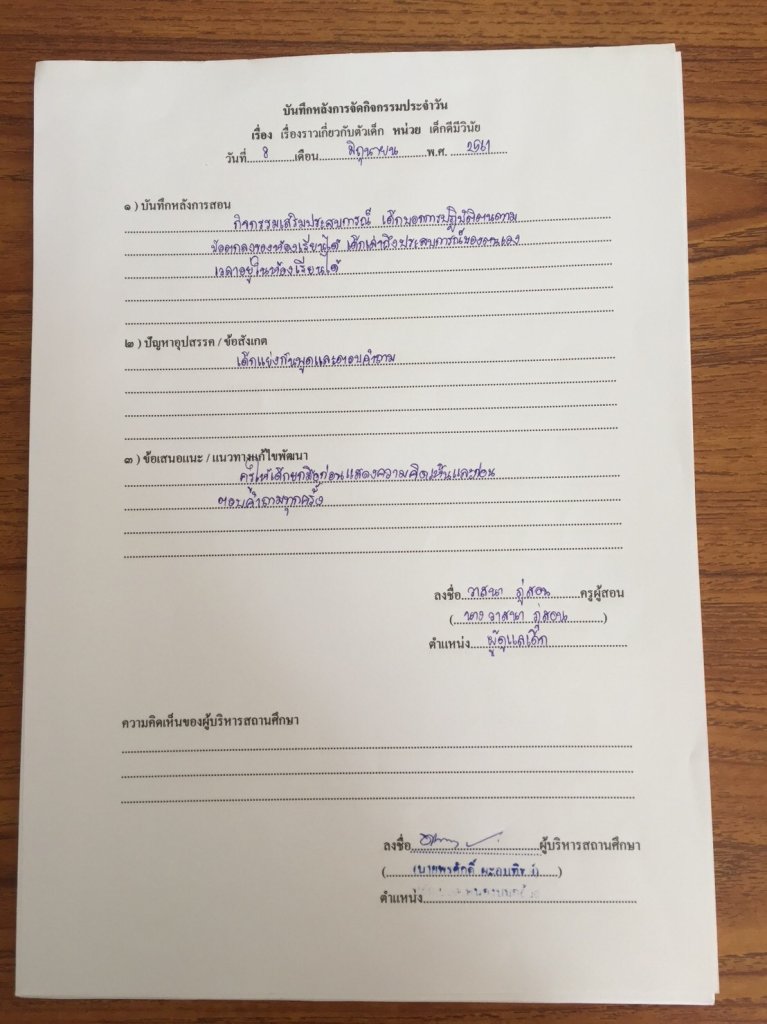 บันทึกหลังการจัดกิจกรรมประจำวัน
เรื่อง เรื่องราวเกี่ยวกับตัวเด็ก หน่วย เด็กดีมีวินัย
วันที่ 8 เดือน มิถุนายน พ.ศ. 2561
๑ ) บันทึกหลังการสอน
กิจกรรมเสริมประสบการณ์ เด็กบอกการปฏิบัติตนตาม
ข้อตกลงของห้องเรียนได้ เด็กเล่าถึงประสบการณ์ของตนเอง
เวลาอยู่ในห้องเรียนได้
๒ ) ปัญหาอุปสรรค / ข้อสังเกต
เด็กแย่งกันพูดและตอบคำถาม
๓ ) ข้อเสนอแนะ / แนวทางแก้ไขพัฒนา
ครูให้เด็กยกมือก่อนแสดงความคิดเห็นและก่อน
ตอบคำถามทุกครั้ง
ลงชื่อ วาสนา ภู่สอน ครูผู้สอน
( นาง วาสนา ภู่สอน )
ตำแหน่ง ผู้ดูแลเด็ก
ความคิดเห็นของผู้บริหารสถานศึกษา
ลงชื่อ ผู้บริหารสถานศึกษา
( นายพรศักดิ์ )
ตำแหน่ง